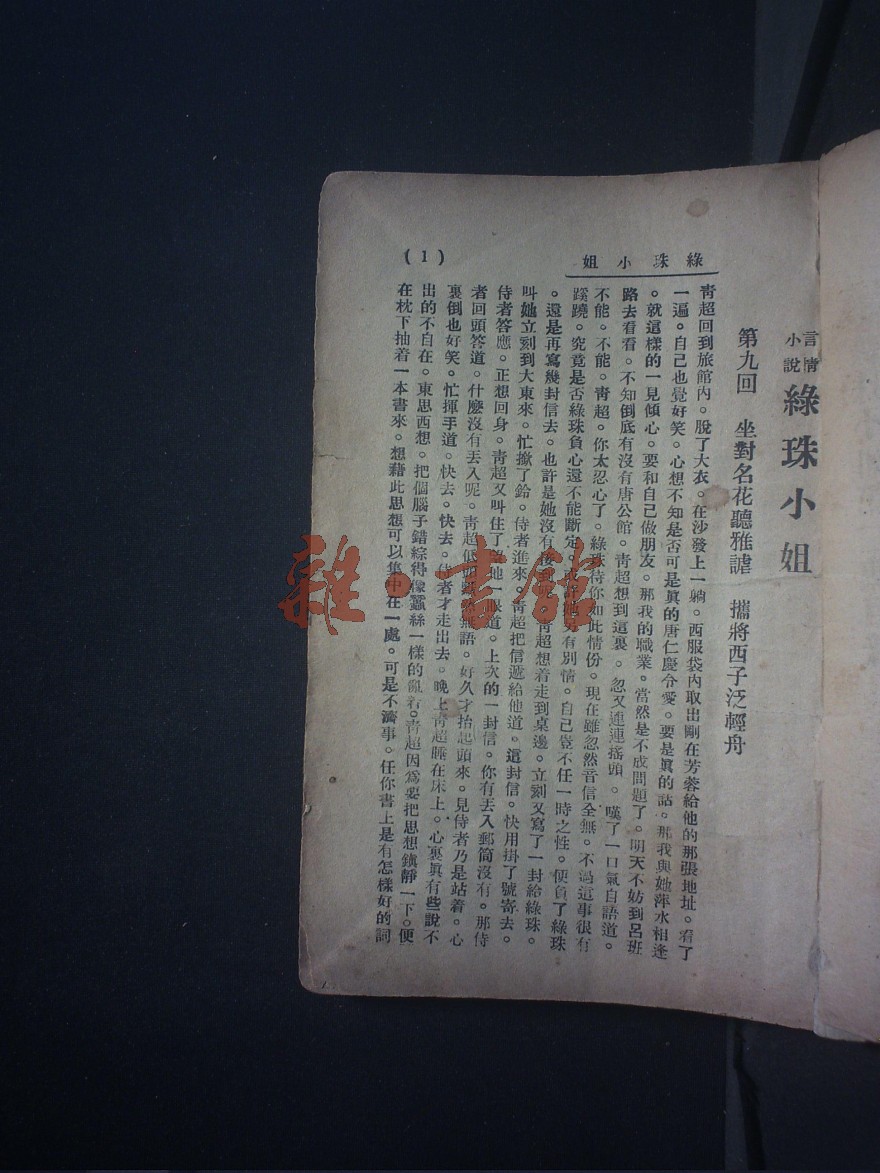 言情
小說
綠珠小姐
第九回　坐對名花聽雅謔　攜將西子泛輕舟
綠珠小姐
青超回到旅館內。脫了大衣。在沙發上一躺。西服袋內取出剛在芳蓉給他的那張地址。看了
一遍。自己也覺好笑。心想不知是否可是眞的唐仁慶令愛。要是眞的話。那我與她萍水相逢
。就這樣的一見傾心。要和自己做朋友。那我的職業。當然是不成問題了。明天不妨到呂班
路去看看。不知倒底有沒有唐公館。靑超想到這裏。忽又連連搖頭。嘆了一口氣自語道。
不能。不能。靑超。你太忍心了。綠珠待你如此情份。現在雖忽然音信全無。不過這事很有
蹊蹺。究竟是否綠珠負心還不能斷定。或許她另有別情。自己豈不任一時之性。便負了綠珠
。還是再寫幾封信去。也許是她沒有接到。靑超想着走到桌邊。立刻又寫了一封給綠珠。
叫她立刻到大東來。忙撳了鈴。侍者進來。靑超把信遞給他道。這封信。快用掛了號寄去。
侍者答應。正想回身。靑超又叫住了望他一眼道。上次的一封信。你有丟入郵筒沒有。那侍
者回頭答道。什麼沒有丟入呢。靑超低頭默然無語。好久才抬起頭來。見侍者乃是站着。心
裏倒也好笑。忙揮手道。快去。快去。侍者才走出去。晚上靑超睡在床上。心裏眞有些說不
出的不自在。東思西想。把個腦子錯綜得像蠶絲一樣的亂着。靑超因爲要把思想鎭靜一下。便
在枕下抽着一本書來。想藉此思想可以集中在一處。可是不濟事。任你書上是有怎樣好的詞
(1)
雜·書館